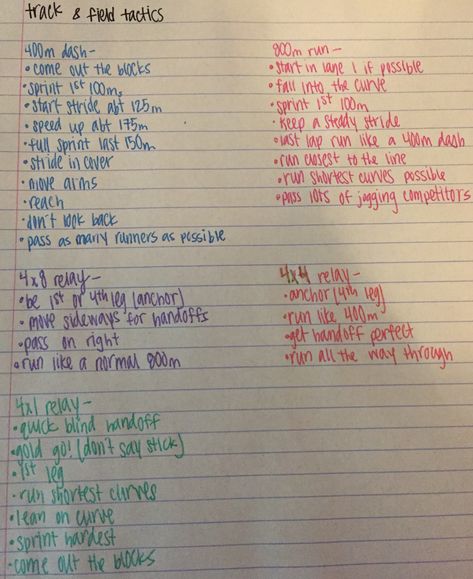 track & field tactics
400m dash-
• come out the blocks
• sprint 1st 100m.
• start stride abt 125m
• speed up abt 175m
• full sprint last 150m
• stride in cover
• move arms
• reach
• don't look back
• pass as many runners as possible
800m run-
• start in lane 1 if possible
• fall into the curve
• sprint 1st 100m
• keep a steady stride
• last lap run like a 400m dash
• run closest to the line
• run shortest curves possible
• pass lots of jogging competitors
4x8 relay-
• be 1st or 4th leg (anchor)
• move sideways for handoffs
• pass on right
• run like a normal 800m
4x4 relay-
• anchor (4th leg)
• run like 400m
• get handoff perfect
• run all the way through
4x1 relay-
• quick blind handoff
• gold go! (don't say stick)
• 1st leg
• run shortest curves
• lean on curve
• sprint hardest
• come out the blocks